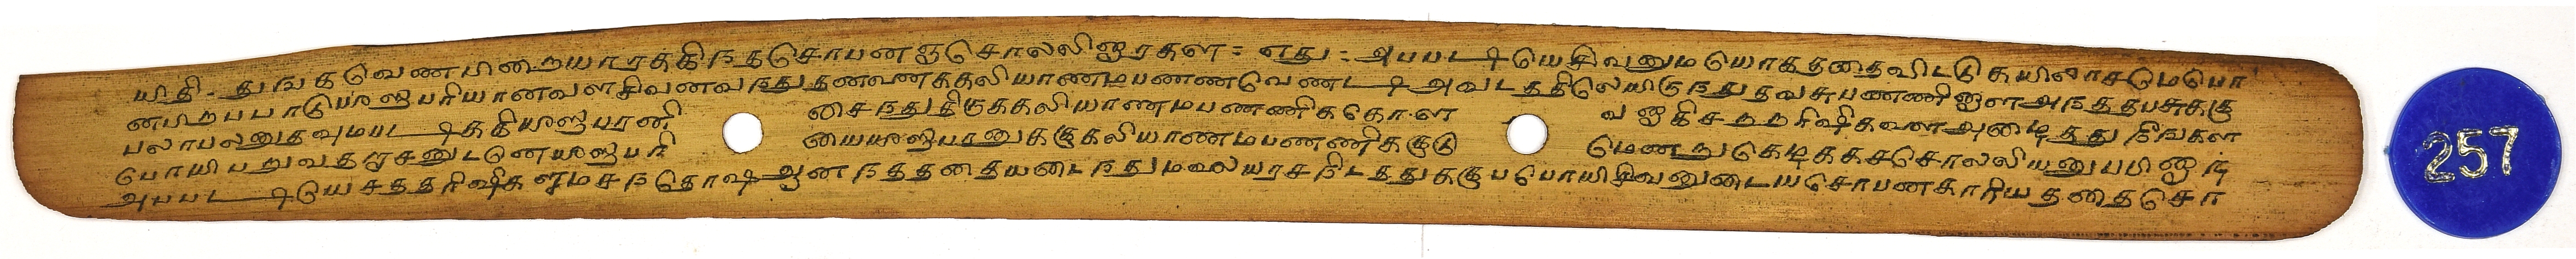 யிதி - துஙக வெணபிறையாரககிநத சொபன ஞசொலலிஞரகள = எது = அபபடியெசிவனுமயொகததைவிடடுகயிலாசமெபொ
னபிறபபாடு பரியானவள சிவனவநது தனவணககலியாணமபணணவெணடி அவடததிலெயிருநது தவசுபணணிஞள அநததபசுககு
பலாபலனுதவுமபடிககு பரனி சைநதுதிருககலியாணமபணணிககொள வஞகிசதத ரிஷிகளை அழைதது நீஙகள
பொயிபறுவதராசனுடனெ பரி யை பரனுககுகலியாணமபணணிககுடு மெனறுகெடகசசொலலியனுபபிஞர
அபபடியெசததரிஷிகளும சநதொஷ ஆனநதததையடைநதுமலையரசநிடததுககுபபொயிசிவனுடையசொபனகாரியததைசொ
257